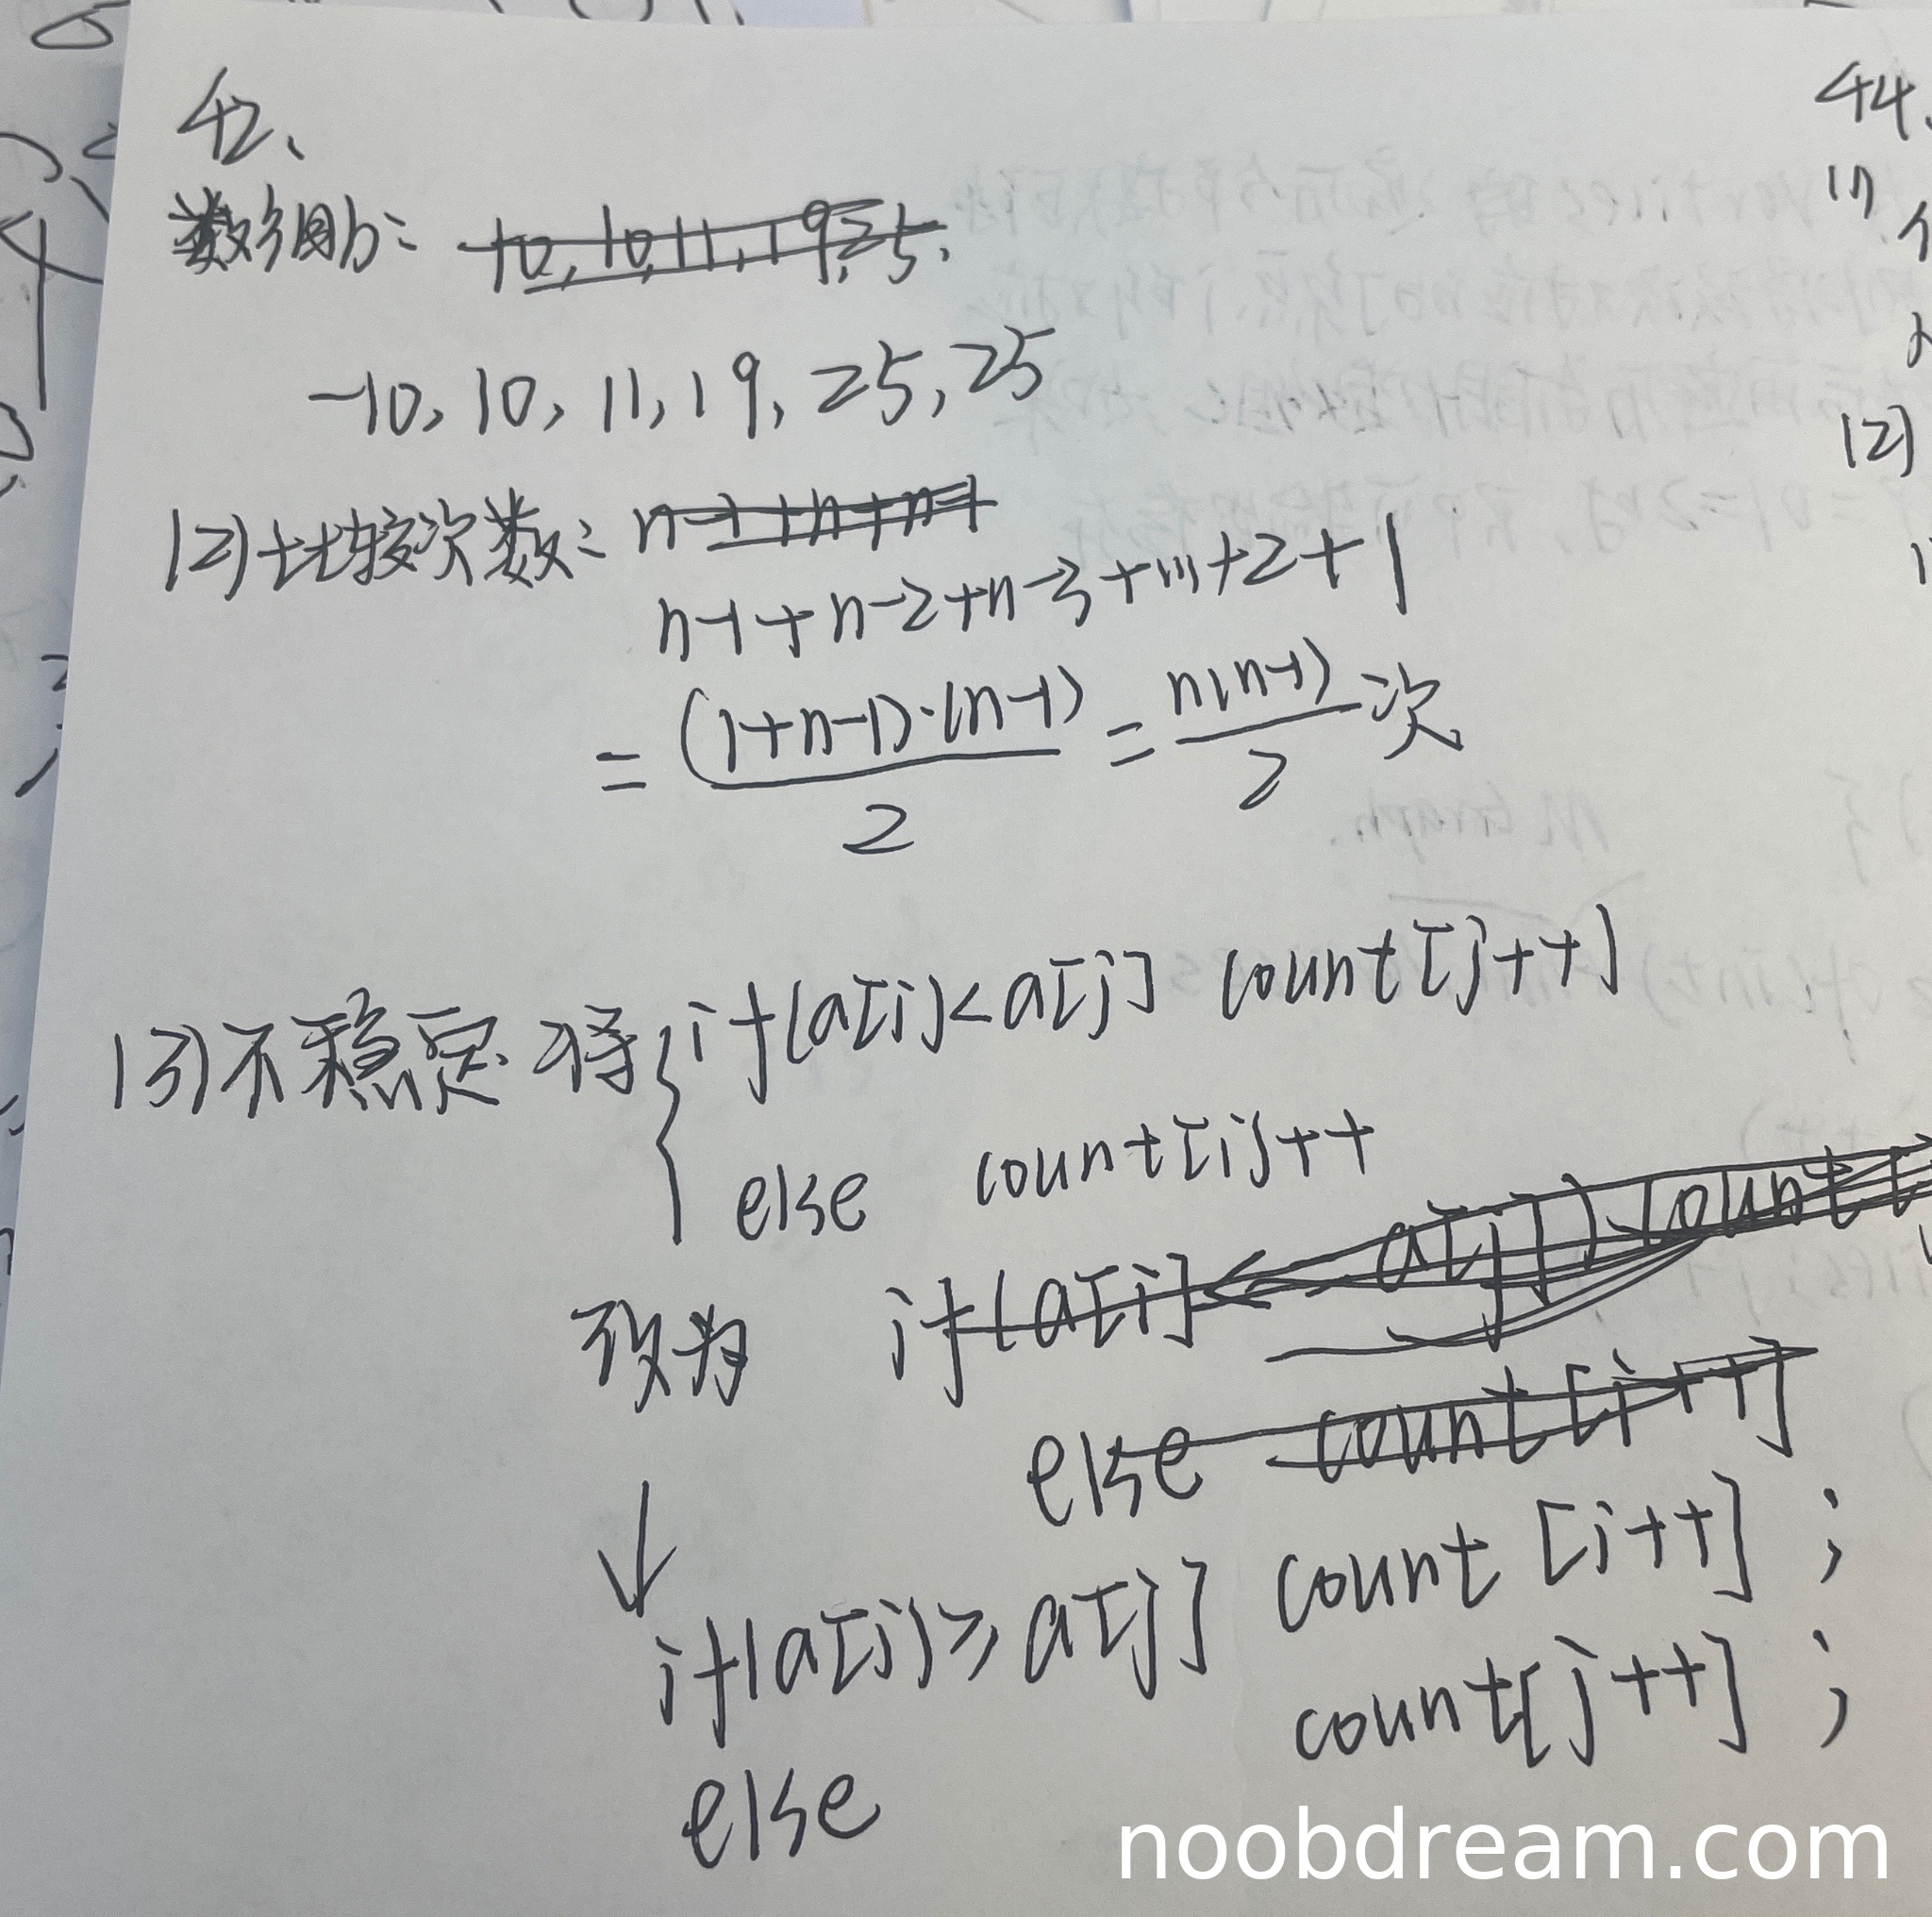 42、
数组b: -10,10,11,19,25.
-10, 10, 11, 19, 25, 25
(2)比较次数: n-1+n+n-1
n-1+n-2+n-3+…+2+1
= (1+n-1)·(n-1) / 2 = n(n-1) / 2 次
(3)不稳定. 将 { if(a[i]<a[j] count[j++]
else count[i]++
改为 if(a[i]< a[j]) count[
else count[i++]
↓
if(a[i]≥a[j] count[i++] ;
count[j++] ;
else
44.
(1)
(2)
noobdream.com